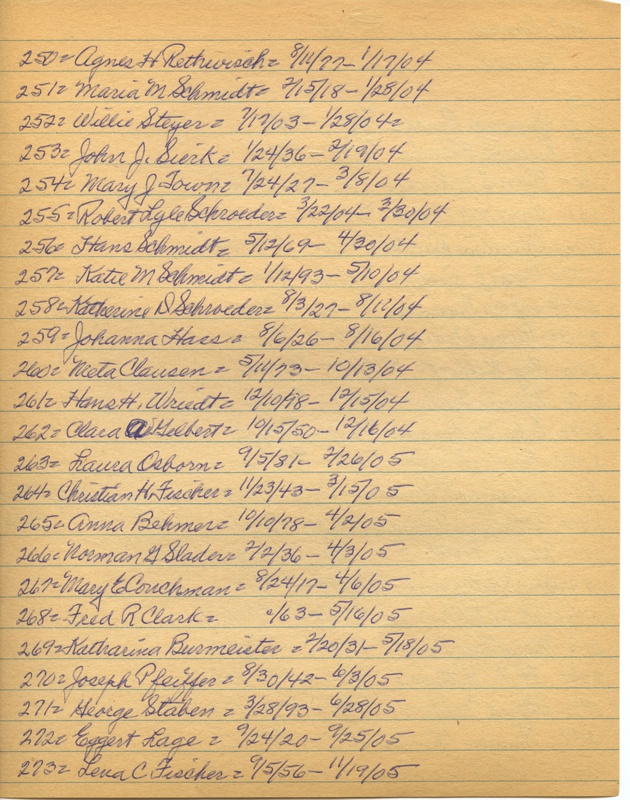 250= Agnes H Rethwisch= 8/11/77- 1/17/04
251= Maria M Schmidt= 2/15/18- 1/28/04
252= Willie Steyer= 7/17/03- 1/28/04=
253= John J. Sierk= 1/24/36- 2/19/04
254= Mary J Town= 7/24/27- 3/8/04
255= Robert Lyle Schroeder= 3/22/04- 3/30/04
256= Hans Schmidt= 5/12/69- 4/30/04
257= Katie M Schmidt= 1/12/93- 5/10/04
258= Katherine D Schroeder= 8/3/27- 8/11/04
259= Johanna Hass= 8/6/26- 8/16/04
260= Meta Clausen= 5/11/73- 10/13/04
261= Hans H. Wriedt= 12/10/98- 12/15/04
262= Clara A Gelbert= 10/15/50- 12/16/04
263= Laura Osborn= 9/5/81- 2/26/05
264= Christian H. Fischer= 11/23/43- 3/15/05
265= Anna Behmer= 10/10/78- 4/2/05
266= Norman G Slader= 2/2/36- 4/3/05
267= Mary E Couchman= 8/24/17- 4/6/05
268= Fred R Clark= /63- 5/16/05
269= Katharina Burmeister= 2/20/31- 5/18/05
270= Joseph Pfeiffer= 8/30/42- 6/3/05
271= George Staben= 3/28/93- 6/28/05
272= Eggert Lage= 9/24/20- 9/25/05
273= Lena C Fischer= 9/5/56- 11/19/05